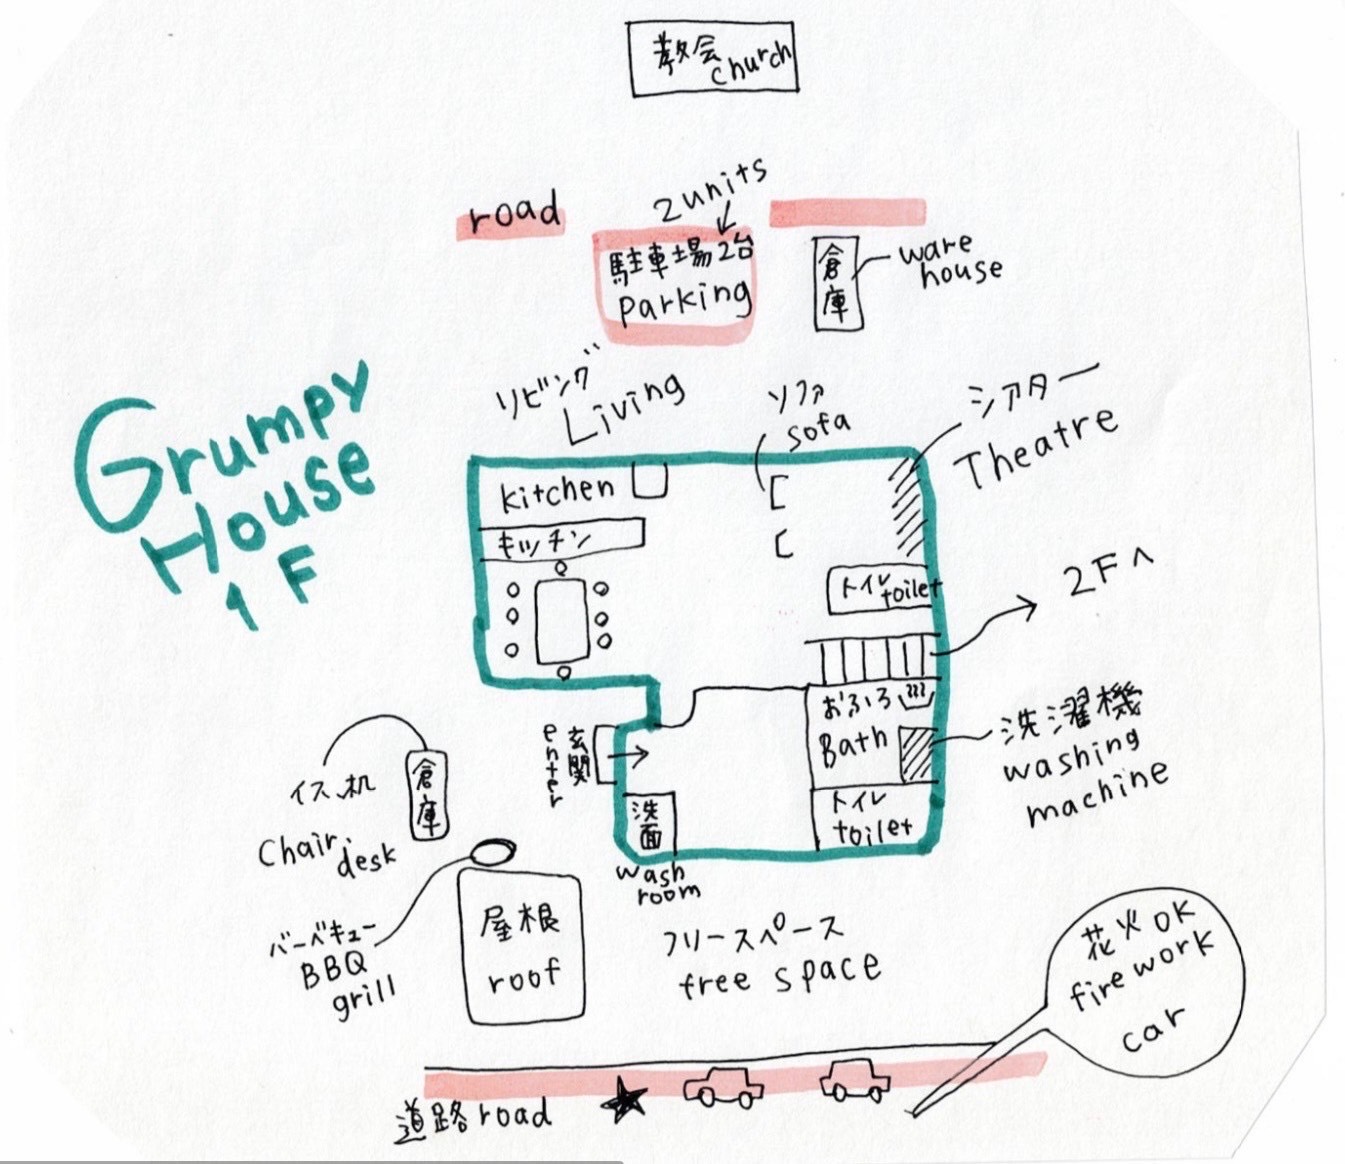 教会
church
road
2units
駐車場2台
parking
倉庫
ware
house
リビング
Living
ソファ
sofa
シアター
Theatre
Grumpy
House
1F
kitchen
キッチン
トイレ
toilet
2Fへ
おふろ
Bath
洗濯機
washing
machine
トイレ
toilet
玄関
enter
洗面
wash
room
イス、机
倉庫
Chair.
desk
バーベキュー
BBQ
grill
屋根
roof
フリースペース
free space
花火OK
firework
car
道路road